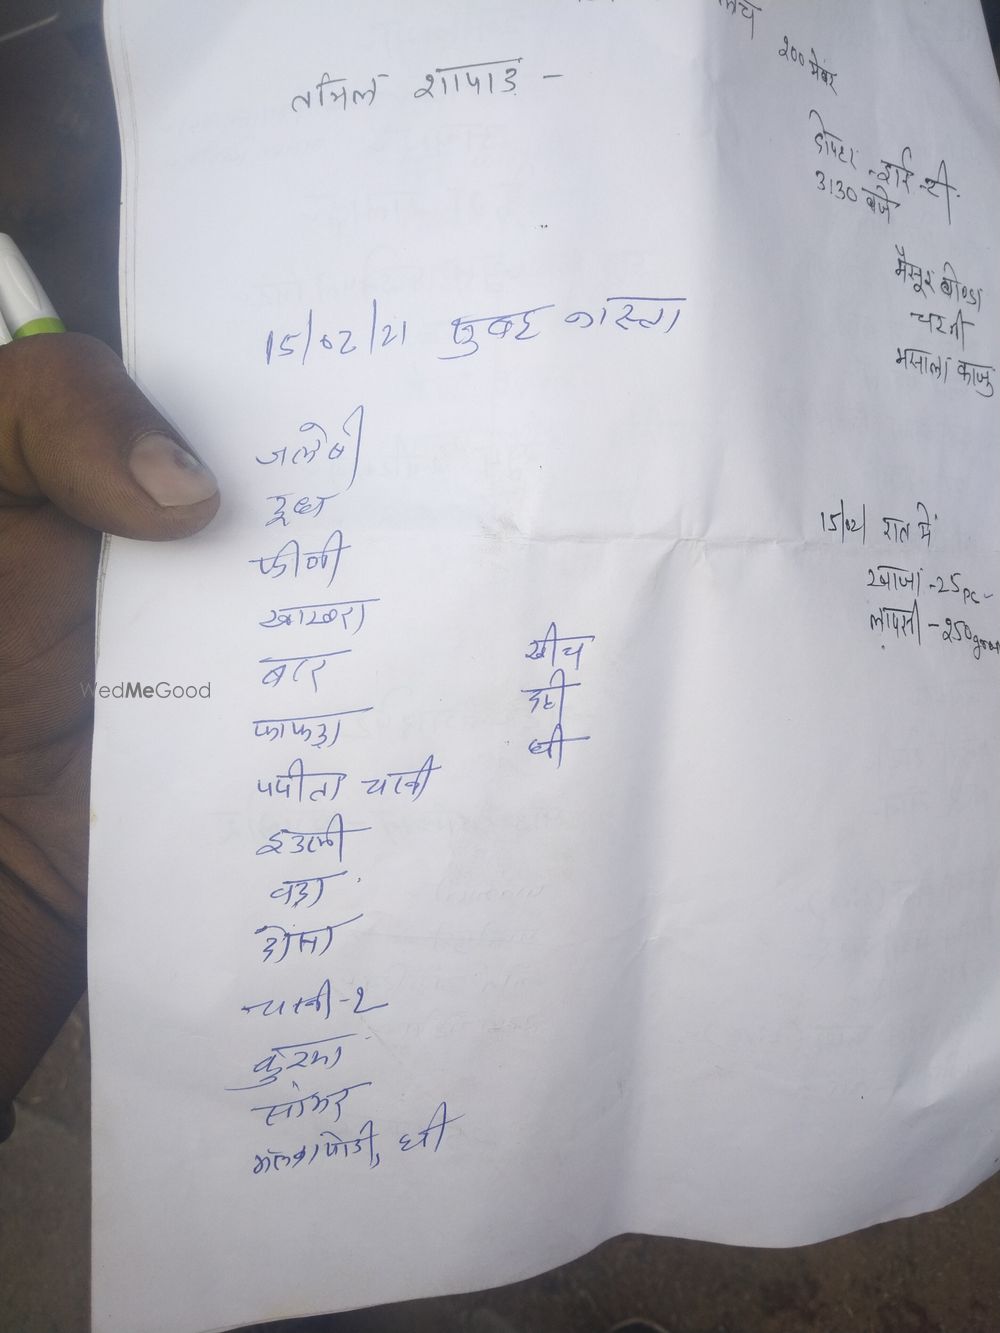 तमिल शापाड -
15/02/21 सुबह नास्ता
जलेबी
दूध
फीणी
खाखरा
बटर
फाफड़ा
पपीता चटनी
इडली
वड़ा
डोसा
चटनी-2
कुरमा
सांभर
मलगापोडी, घी
खीच
दही
घी
200 मेंबर
दोपहर हाई टी
3:30 बजे
मैसूर बोण्डा
चटनी
मसाला काजु
15/02/ रात में
खाजा -25pc
लापसी -250gram
WedMeGood